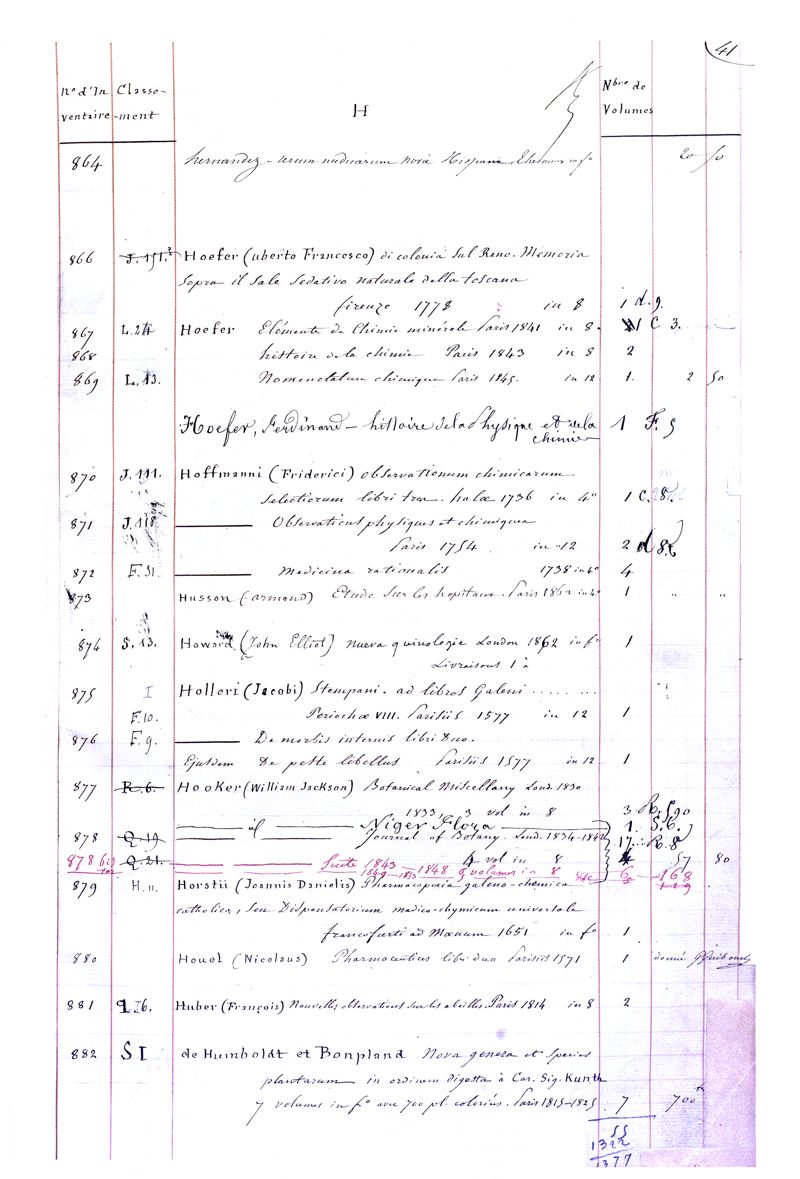 41
No d'In Classe- H Nbre de
ventaire -ment Volumes
864 hernandez - rerum medicarum nova Hispania Thesaurus in fo 20 50
866 J. 151.2 Hoefer (uberto Francesco) di colonia Sul Reno. Memoria
Sopra il Sale Sedativo naturale della toscana
firenze 1778 in 8 1 d. 9.
867 L. 24 Hoefer Eléments de Chimie minérale Paris 1841 in 8. 1 C 3.
868 histoire de la chimie Paris 1843 in 8 2
869 L. 13. Nomenclature chimique Paris 1845. in 12 1. 2 50
Hoefer, Ferdinand - histoire de la Physique et de la 1 F. 5
chimie
870 J. 111. Hoffmanni (Friderici) observationum chimicarum
selectiorum libri tres. halae 1736 in 4o 1 C. 8.
871 J. 118 ——— Observations physiques et chimiques
Paris 1754 in-12 2 d 8.
872 F. 31. ——— Medicina rationalis 1738 in 4o 4
873 Husson (armand) Etude sur les hopitaux. Paris 1862 in 4o 1 " "
874 S. 13. Howard (John Elliot) nueva quinologie London 1862 in fo 1
Livraisons 1 à
875 I Holleri (Jacobi) Stempani. ad libros Galeni ........
F. 10. Periochæ VIII. Parisiis 1577 in 12 1
876 F. 9. ——— De morbis internis libri duo.
Ejusdem De peste libellus Parisiis 1577 in 12 1
877 R. 6. Hooker (William Jackson) Botanical Miscellany Lond. 1830
1833 3 vol in 8 3 R. 5 90
——— id ——— Niger Flora ——— 1. S. 6.
878 Q. 19 ——— Journal of Botany. Lond. 1834-1842 17. R. 8
878 bis Q. 21. ——— Suite 1843 — 1848 4 vol in 8 4 57 80
ter 1849 - 1853 5 volumes in 8 6 168
879 H. 11. Horstii (Joannis Danielis) Pharmacopoeia galeno-chemica 119
catholica, seu Dispensatorium medico-chymicum universale
francofurti ad Mœnum 1651 in fo 1
880 Houel (Nicolaus) Pharmaceutices libri duo Parisiis 1571 1 donné G Guibourt
881 Q I 6. Huber (François) Nouvelles observations sur les abeilles. Paris 1814 in 8 2
882 S I de Humboldt et Bonpland Nova genera et species
plantarum in ordinem digesta à Car. Sig. Kunth
7 volumes in fo avec 700 pl. coloriés. Paris 1815-1825 7 700
55
1322
1377